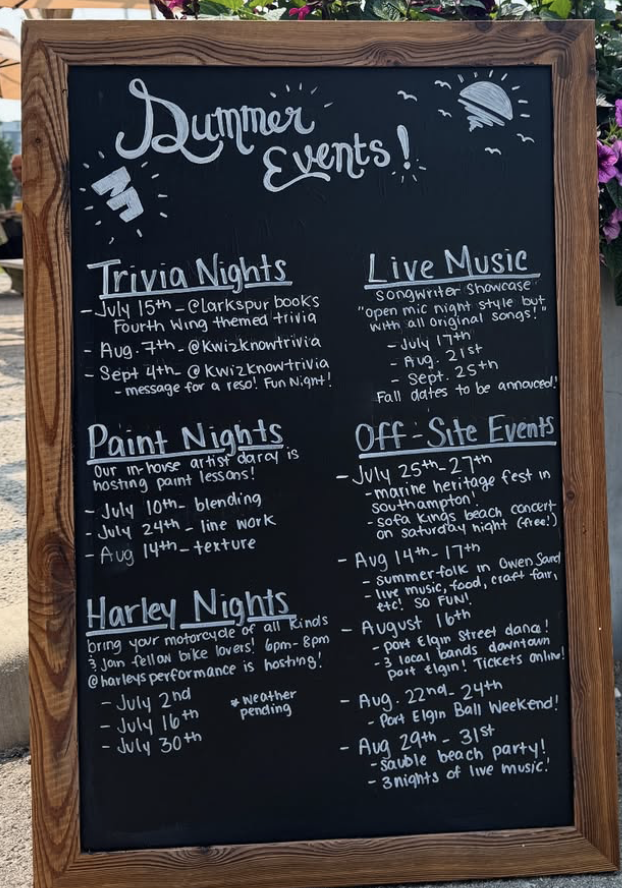 Summer
Events!
Trivia Nights
- July 15th - @larkspur books
Fourth Wing themed trivia
- Aug. 7th - @Kwizknowtrivia
- Sept 4th - @Kwizknowtrivia
- message for a reso! Fun Night!
Paint Nights
Our in-house artist darcy is
hosting paint lessons!
- July 10th - blending
- July 24th - line work
- Aug 14th - texture
Harley Nights
bring your motorcycle of all kinds
& Join fellow bike lovers! 6pm - 8pm
@harleysperformance is hosting!
- July 2nd
- July 16th
- July 30th
* weather
pending
Live Music
Songwriter Showcase
"open mic night style but
with all original songs!"
- July 17th
- Aug. 21st
- Sept. 25th
Fall dates to be annouced!
Off-Site Events
- July 25th - 27th
- marine heritage fest in
Southampton!
- sofa kings beach concert
on saturday night (free!)
- Aug 14th - 17th
- summerfolk in Owen Sound
- live music, food, craft fair,
etc! SO FUN!
- August 16th
- port Elgin Street dance!
- 3 local bands downtown
port Elgin! Tickets online!
- Aug. 22nd - 24th
- Port Elgin Ball Weekend!
- Aug 29th - 31st
- sauble beach party!
- 3 nights of live music!